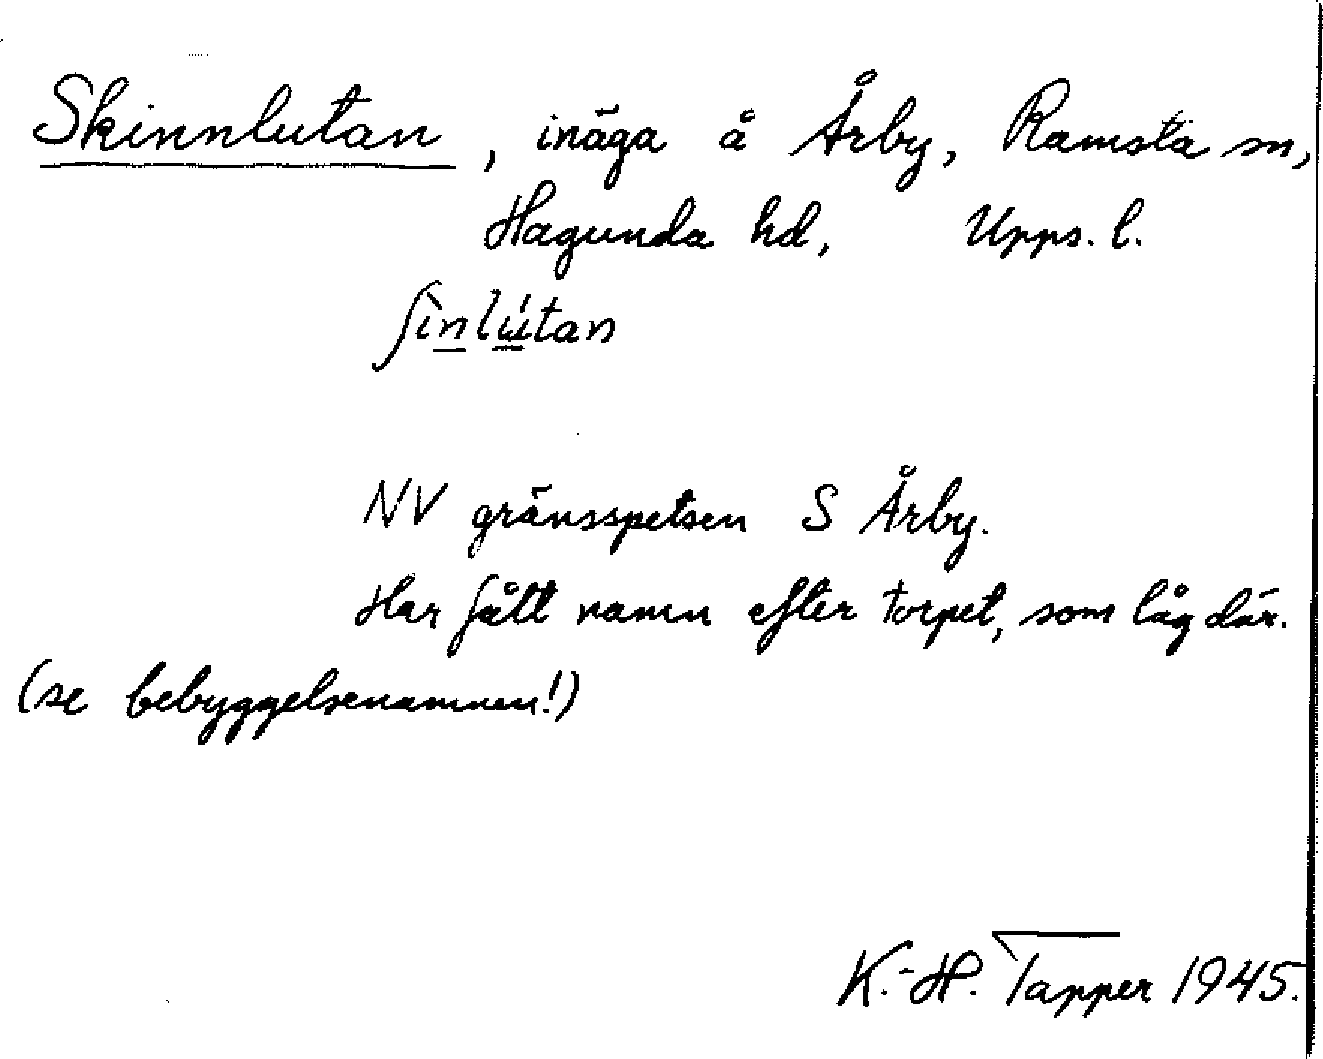 Skinnlutan, inäga å Årby, Ramsta sn,
Hagunda hd, Upps. l.
ʃìnlútan
NV gränsspetsen S Årby.
Har fått namn efter torpet, som låg där.
(se bebyggelsenamnen!)
K.-H. Tapper 1945.